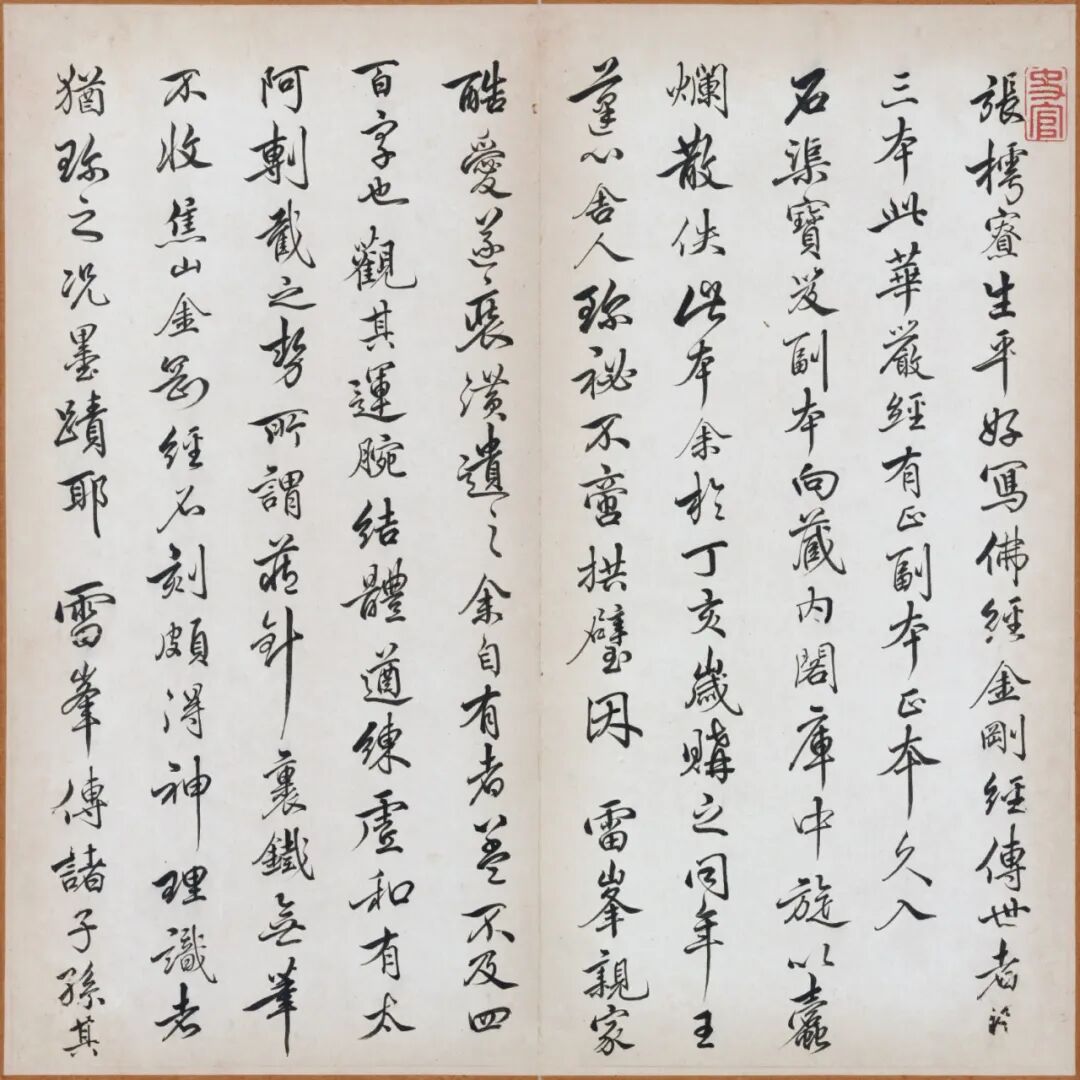 史官
張樗寮生平好寫佛經金剛經傳世者
三本此華嚴經有正副本正本久入
石渠寶笈副本向藏内閣庫中旋以蠹
爛散佚此本余於丁亥歲購之同年王
蓮心舍人珍祕不啻拱璧因 雷峯親家
酷愛遂裝潢遺之余自有者蓋不及四
百字也觀其運腕結體遒練虛和有太
阿剸截之勢所謂藏針裹鐵無筆
不收焦山金剛經石刻頗得神理識者
猶珍之况墨蹟耶 雷峯傳諸子孫其